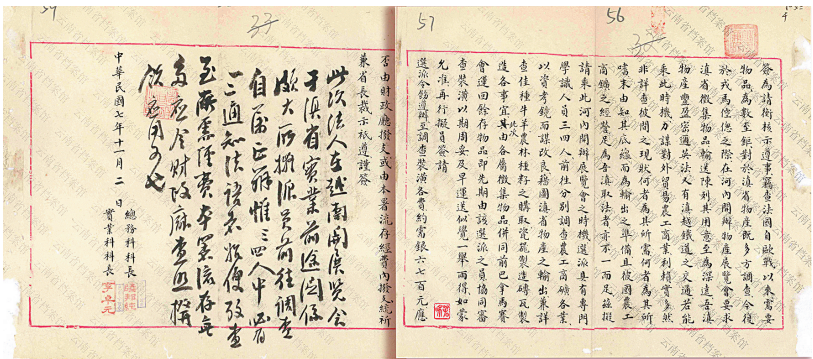 簽為請衡核示遵事竊查法國自歐戰以來需要
物品為數至鉅對於滇省物產既多方調查今復
於我為憶之際在河內開辦物產展覽會要求
滇省徵集物品輸送陳列其用意至為深遠吾滇
物產豐盈當通英法人有滇越鐵道之交通若能
乘此時機力謀對外貿易農工商業利賴實多然
非詳查彼間之現狀何者為其所需何者為其所
嗜末由知其底蘊而為輸出之準備且彼國農工
商礦之經營足為吾滇取法者亦不一而足茲擬
請乘此河內開辦展覽會之時機選派具有專門
學識人員三四人前往分別調查農工商礦各業
以資考鏡而謀改良藉圖滇省物產之輸出兼詳
查佳種牛羊農林種籽之購取瓷罷製造磚瓦製
造各事宜其由各屬徵集物品併同前已拿馬賽
此次
會運回餘存物品即先期由該選派之員協同審
查裝潢以期周妥及早運送似覺一舉兩得如蒙
允准再行擬員簽請
選派令飭遵辦至調查裝潢各費約需銀六七百元應
否由財政廳撥支或由本署流存經費內撥支統祈
兼省長裁示祗遵謹簽
此次法人在越南開展覽會
于滇省實業前途關係
頗大所擬派员前往調查
自属正辦惟三四人中必有
一二通知法語者始便攷查
至所需經費本署流存無
多應令財政廳查照撥
飭
中華民國七年十一月二日
總務科科長
實業科科長
56
57